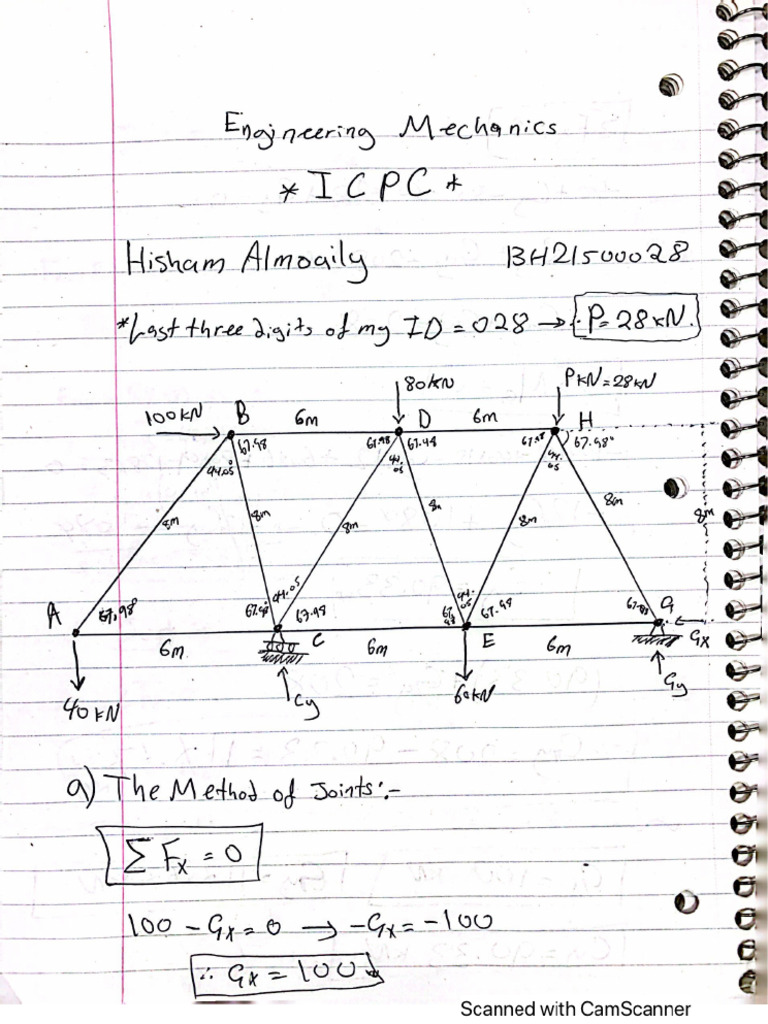 Engineering Mechanics
* I C P C *
Hisham Almoaily BH21500028
*Last three digits of my ID = 028 → ∴ P = 28 kN.
80kN P kN = 28kN
100kN B 6m D 6m H
67.98 67.98 67.98 67.98 67.98°
44.05° 44.05 44.05
8m 8m 8m 8m 8m 8m 8m
44.05 44.05
A 67.98° 67.98 67.98 67.98 67.98 67.98 G
6m C 6m E 6m Gx
40kN Cy 60kN Gy
a) The Method of Joints:-
Σ Fx = 0
100 - Gx = 0 → -Gx = -100
∴ Gx = 100
Scanned with CamScanner